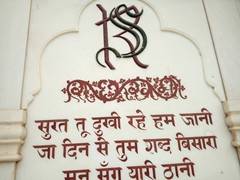 सुरत तू दुखी रहे हम जानी
जा दिन से तुम शब्द बिसारा
मन सँग यारी ठानी